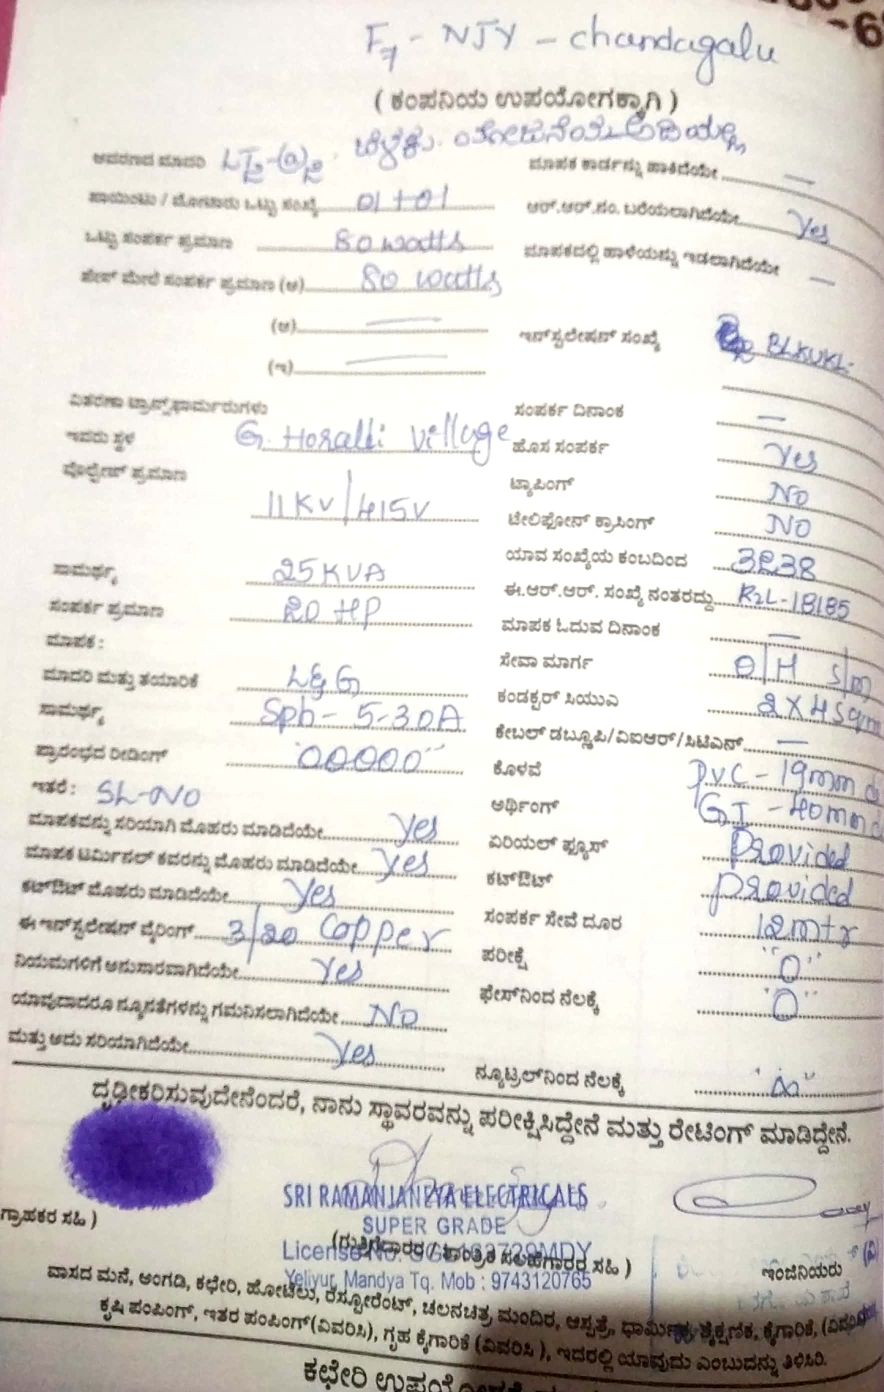 F7 - NJY - chandagalu
( ಕಂಪನಿಯ ಉಪಯೋಗಕ್ಕಾಗಿ )
ಆವರಣದ ಮಾದರಿ
ಮಾಪಕ ಕಾರ್ಡನ್ನು ಹಾಕಿದೆಯೇ —
ಪಾಯಿಂಟು / ಮೋಟಾರು ಒಟ್ಟು ಸಂಖ್ಯೆ 01+01
ಆರ್.ಆರ್.ನಂ. ಬರೆಯಲಾಗಿದೆಯೇ Yes
ಒಟ್ಟು ಸಂಪರ್ಕ ಪ್ರಮಾಣ 80 watts
ಮಾಪಕದಲ್ಲಿ ಹಾಳೆಯನ್ನು ಇಡಲಾಗಿದೆಯೇ —
ಫೇಸ್ ಮೇಲೆ ಸಂಪರ್ಕ ಪ್ರಮಾಣ (ಅ) 80 watts
(ಆ) —
ಇನ್‌ಸ್ಟಲೇಷನ್ ಸಂಖ್ಯೆ BLKUKL-
(ಇ) —
ವಿತರಣಾ ಟ್ರಾನ್ಸ್‌ಫಾರ್ಮರುಗಳು
ಸಂಪರ್ಕ ದಿನಾಂಕ —
ಇದರು ಸ್ಥಳ G. Horalli Village
ಹೊಸ ಸಂಪರ್ಕ Yes
ವೋಲ್ಟೇಜ್ ಪ್ರಮಾಣ
ಟ್ಯಾಪಿಂಗ್ NO
11KV/415V
ಟೇಲಿಫೋನ್ ಕ್ರಾಸಿಂಗ್ NO
ಸಾಮರ್ಥ್ಯ 25KVA
ಯಾವ ಸಂಖ್ಯೆಯ ಕಂಬದಿಂದ 3238
ಸಂಪರ್ಕ ಪ್ರಮಾಣ 20 HP
ಈ.ಆರ್.ಆರ್. ಸಂಖ್ಯೆ ನಂತರದ್ದು RZL-18185
ಮಾಪಕ :
ಮಾಪಕ ಓದುವ ದಿನಾಂಕ —
ಮಾದರಿ ಮತ್ತು ತಯಾರಿಕೆ L&G
ಸೇವಾ ಮಾರ್ಗ O/H S/m
ಸಾಮರ್ಥ್ಯ Sph- 5-30A
ಕಂಡಕ್ಟರ್ ಸಿಯುಎ 2X4Sqm
ಪ್ರಾರಂಭದ ರೀಡಿಂಗ್ "00000"
ಕೇಬಲ್ ಡಬ್ಲೂಪಿ/ವಿಐಆರ್/ಸಿಟಿಎಸ್ —
ಇತರೆ : SL-NO
ಕೊಳವೆ PVC-19mm
ಅರ್ಥಿಂಗ್ GI -40mm
ಮಾಪಕವನ್ನು ಸರಿಯಾಗಿ ಮೊಹರು ಮಾಡಿದೆಯೇ Yes
ಏರಿಯಲ್ ಫ್ಯೂಸ್ Provided
ಮಾಪಕ ಟರ್ಮಿನಲ್ ಕವರನ್ನು ಮೊಹರು ಮಾಡಿದೆಯೇ Yes
ಕಟ್‌ಔಟ್ Provided
ಕಟ್‌ಔಟ್ ಮೊಹರು ಮಾಡಿದೆಯೇ Yes
ಸಂಪರ್ಕ ಸೇವೆ ದೂರ 12mtr
ಈ ಇನ್‌ಸ್ಟಲೇಷನ್ ವೈರಿಂಗ್ 3/20 Copper
ಪರೀಕ್ಷೆ "0"
ನಿಯಮಗಳಿಗೆ ಅನುಸಾರವಾಗಿದೆಯೇ Yes
ಫೇಸ್‌ನಿಂದ ನೆಲಕ್ಕೆ "0"
ಯಾವುದಾದರೂ ನ್ಯೂನತೆಗಳನ್ನು ಗಮನಿಸಲಾಗಿದೆಯೇ NO
ಮತ್ತು ಅದು ಸರಿಯಾಗಿದೆಯೇ Yes
ನ್ಯೂಟ್ರಲ್‌ನಿಂದ ನೆಲಕ್ಕೆ "∞"
ದೃಢೀಕರಿಸುವುದೇನೆಂದರೆ, ನಾನು ಸ್ಥಾವರವನ್ನು ಪರೀಕ್ಷಿಸಿದ್ದೇನೆ ಮತ್ತು ರೇಟಿಂಗ್ ಮಾಡಿದ್ದೇನೆ.
SRI RAMANJANEYA ELECTRICALS
SUPER GRADE
ಗ್ರಾಹಕರ ಸಹಿ )
(ಗುತ್ತಿಗೆದಾರರ / ಸಲಹೆಗಾರರ ಸಹಿ )
License No.
ಇಂಜಿನಿಯರು
Yeliyur, Mandya Tq. Mob : 9743120765
ವಾಸದ ಮನೆ, ಅಂಗಡಿ, ಕಛೇರಿ, ಹೋಟೆಲು, ರೆಸ್ಟೋರೆಂಟ್, ಚಲನಚಿತ್ರ ಮಂದಿರ, ಆಸ್ಪತ್ರೆ, ಧಾರ್ಮಿಕ, ಶೈಕ್ಷಣಿಕ, ಕೈಗಾರಿಕೆ, (ವಿವರಿಸಿ)
ಕೃಷಿ ಪಂಪಿಂಗ್, ಇತರ ಪಂಪಿಂಗ್(ವಿವರಿಸಿ), ಗೃಹ ಕೈಗಾರಿಕೆ (ವಿವರಿಸಿ ), ಇದರಲ್ಲಿ ಯಾವುದು ಎಂಬುದನ್ನು ತಿಳಿಸಿರಿ.
ಕಛೇರಿ